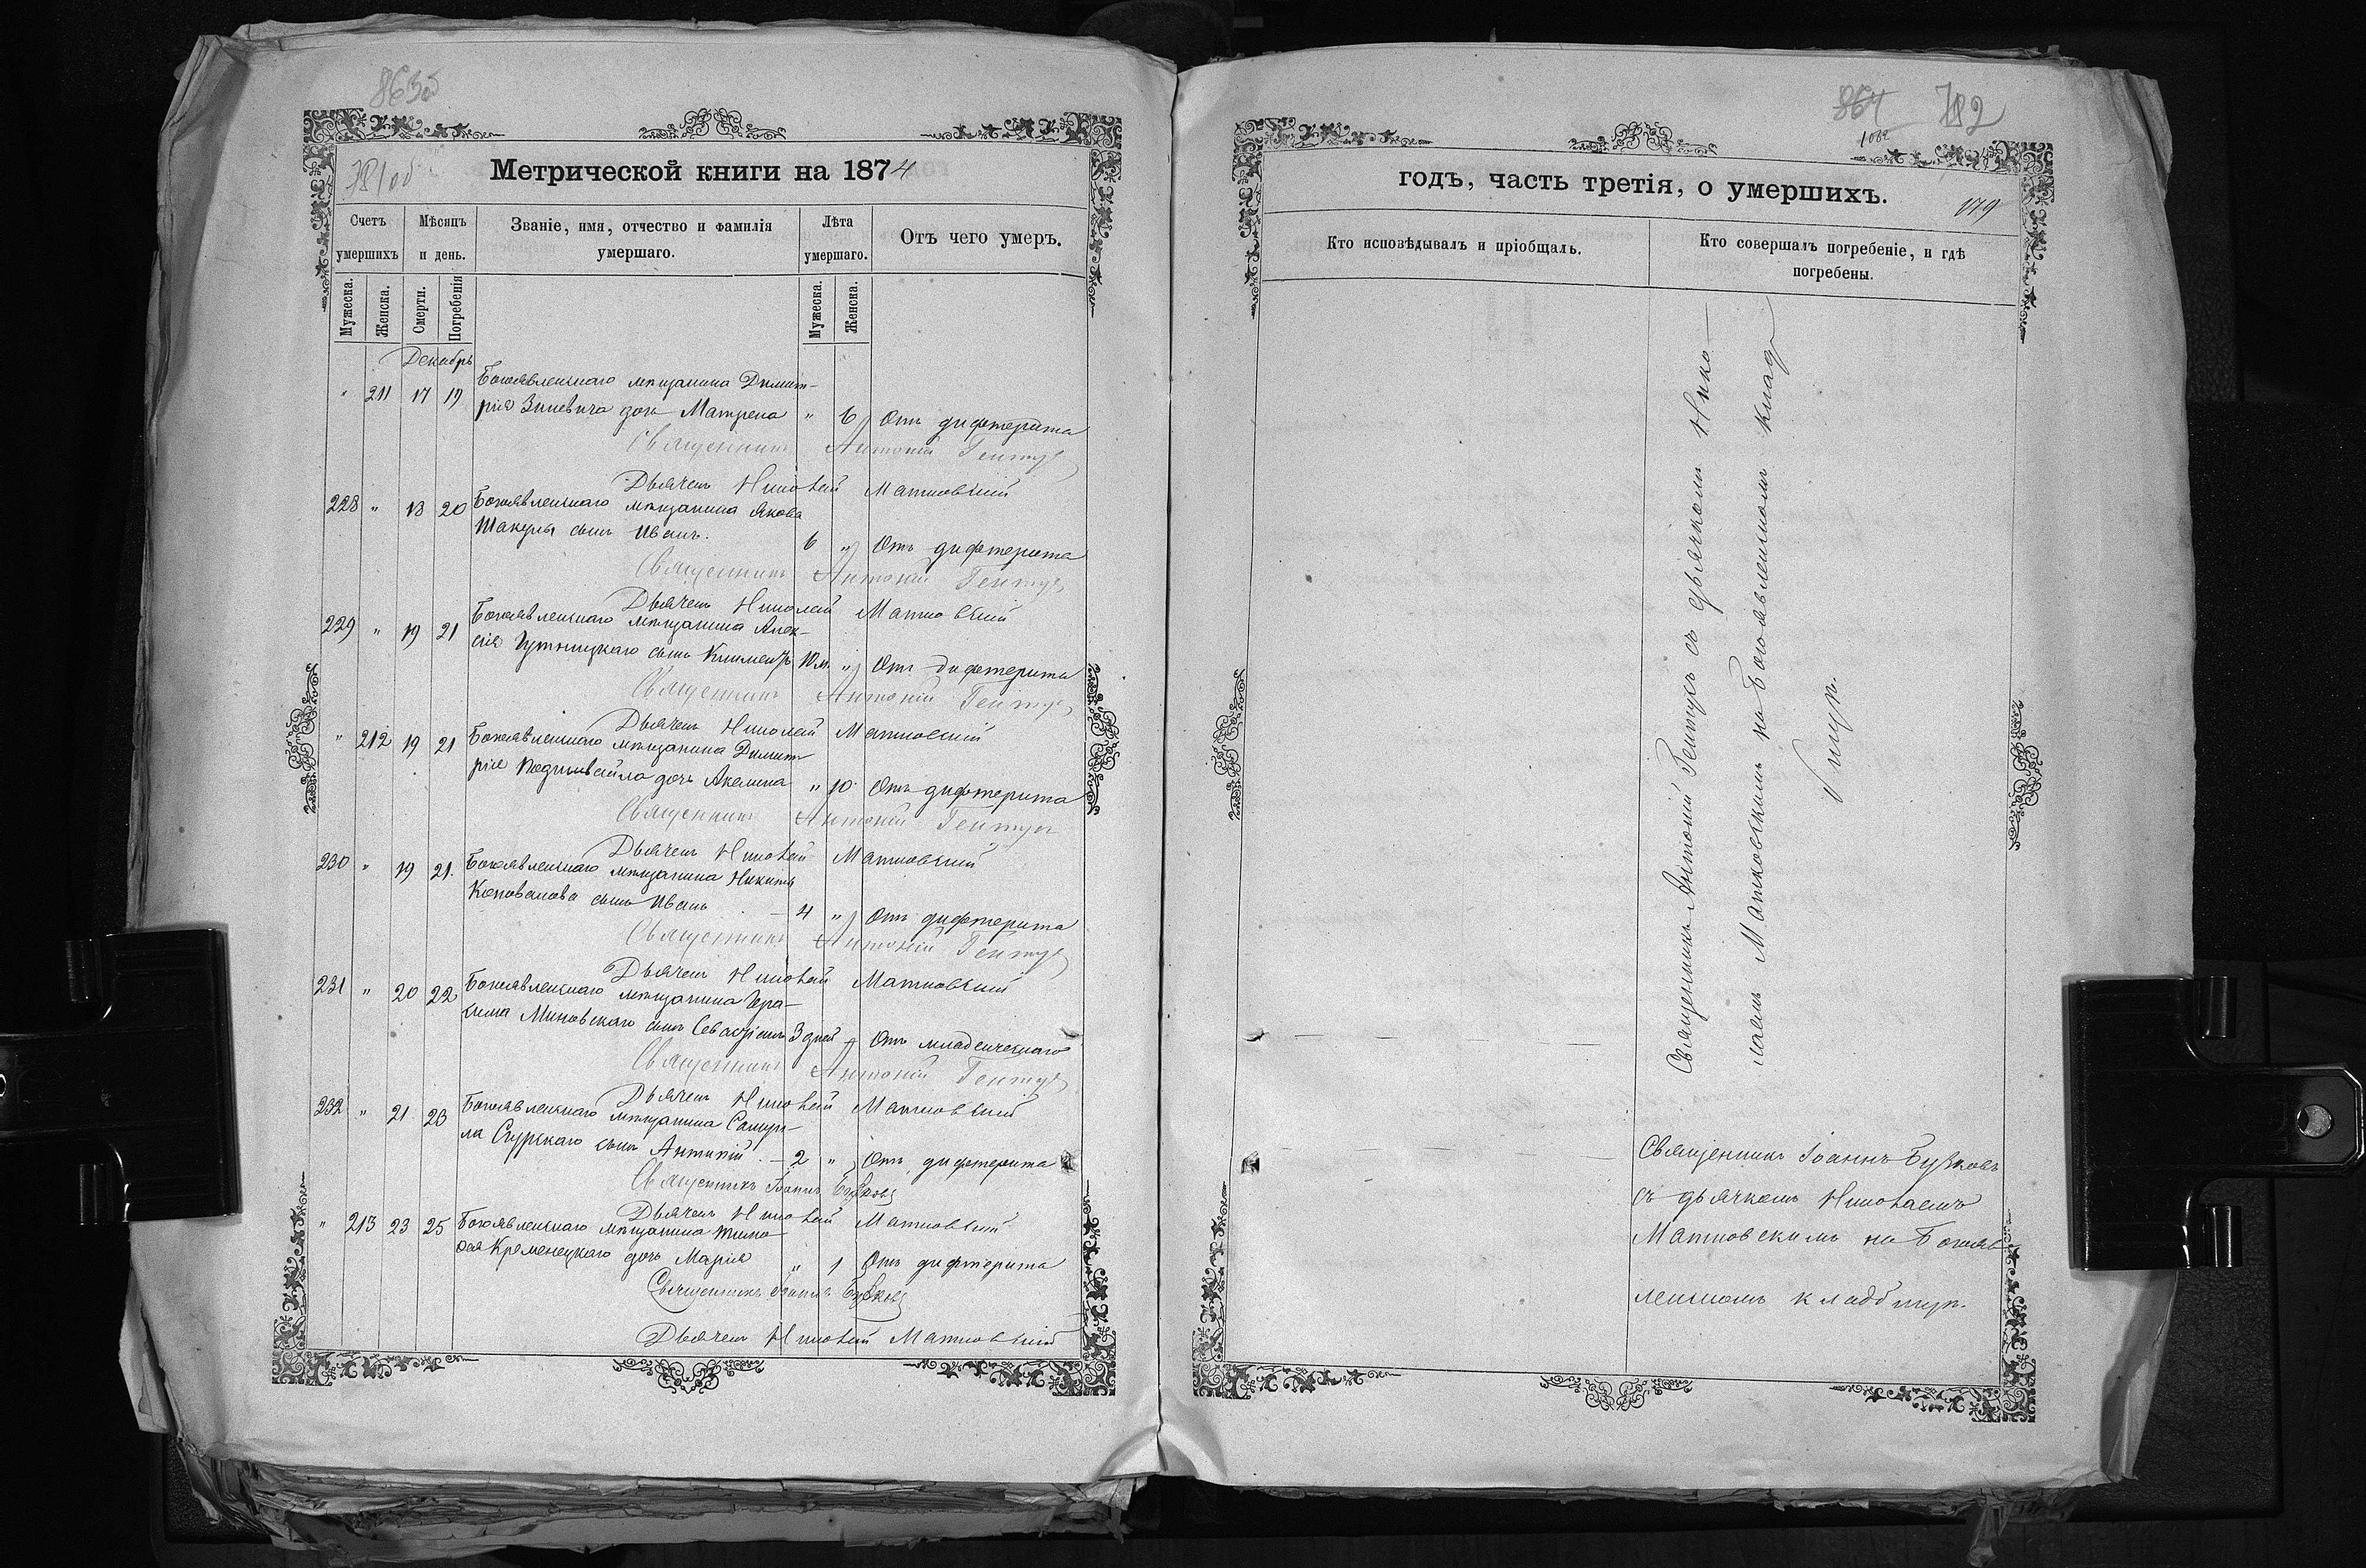 863об
781об
Метрической книги на 1874
Счетъ умершихъ
Мѣсяцъ и день.
Званіе, имя, отчество и фамилія умершаго.
Лѣта умершаго.
Отъ чего умеръ.
Мужеска. Женска. Смерти. Погребенія Мужеска. Женска.
Декабрь
" 211 17 19 Богоявленскаго мѣщанина Димит-
рія Зиневича дочь Матрена " 6 Отъ дифтерита
Священникъ Антоній Гентухъ
Дьячекъ Николай Матковскій
228 " 18 20 Богоявленскаго мѣщанина Якова
Шакуры сынъ Иванъ. 6 " Отъ дифтерита
Священникъ Антоній Гентухъ
Дьячекъ Николай Матковскій
229 " 19 21 Богоявленскаго мѣщанина Алек-
сія сынъ Климентъ 10 м. " Отъ дифтерита
Священникъ Антоній Гентухъ
Дьячекъ Николай Матковскій
" 212 19 21 Богоявленскаго мѣщанина Димит-
рія дочь Акелина " 10 Отъ дифтерита
Священникъ Антоній Гентухъ
Дьячекъ Николай Матковскій
230 " 19 21. Богоявленскаго мѣщанина Никиты
Коновалова сынъ Иванъ 4 " Отъ дифтерита
Священникъ Антоній Гентухъ
Дьячекъ Николай Матковскій
231 " 20 22 Богоявленскаго мѣщанина Гера-
сима Миновскаго сынъ 3 дней Отъ младенческаго
Священникъ Антоній Гентухъ
Дьячекъ Николай Матковскій
232 " 21 23 Богоявленскаго мѣщанина Самуи-
ла сынъ 2 " Отъ дифтерита
Священникъ Іоаннъ
Дьячекъ Николай Матковскій
" 213 23 25 Богоявленскаго мѣщанина Тимо-
фея Кременецкаго дочь Марія " 1 Отъ дифтерита
Священникъ Іоаннъ
Дьячекъ Николай Матковскій
864 782
годъ, часть третія, о умершихъ.
179
Кто исповѣдывалъ и пріобщалъ.
Кто совершалъ погребеніе, и гдѣ погребены.
Священникъ Антоній Гентухъ съ дьячкомъ Нико-
лаемъ Матковскимъ на Богоявленскомъ клад-
бищѣ.
Священникъ Іоаннъ
съ дьячкомъ Николаемъ
Матковскимъ на Богояв-
ленскомъ кладбищѣ.